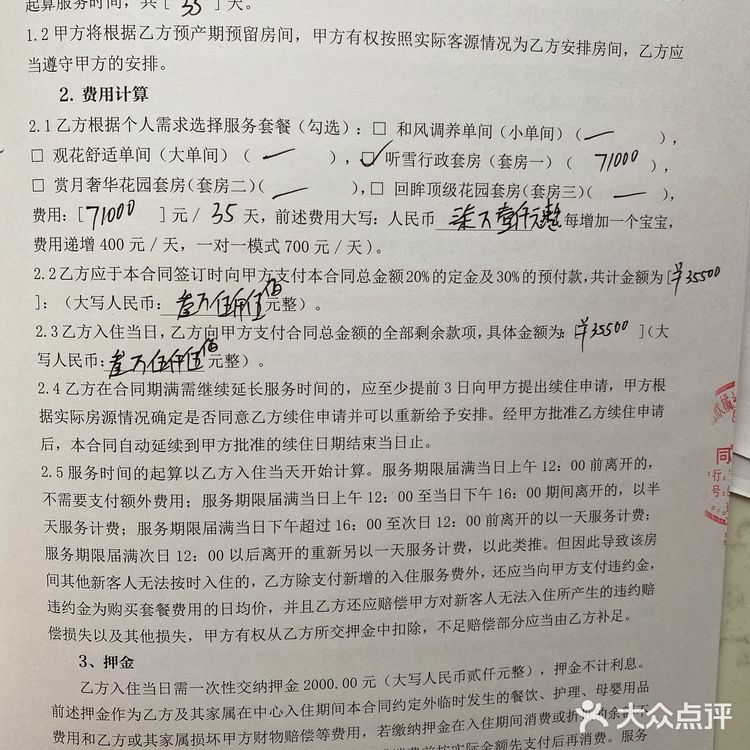 起算服务时间，共[ 35 ]天。
1.2 甲方将根据乙方预产期预留房间，甲方有权按照实际客源情况为乙方安排房间，乙方应
当遵守甲方的安排。
2. 费用计算
2.1 乙方根据个人需求选择服务套餐（勾选）：□ 和风调养单间（小单间）（ — ），
□ 观花舒适单间（大单间）（ — ），☑ 听雪行政套房（套房一）（ 71000 ），
□ 赏月奢华花园套房（套房二）（ — ），□ 回眸顶级花园套房（套房三）（ — ），
费用：[ 71000 ]元/ 35 天，前述费用大写：人民币 柒万壹仟元整 每增加一个宝宝，
费用递增 400 元/天，一对一模式 700 元/天）。
2.2 乙方应于本合同签订时向甲方支付本合同总金额 20%的定金及 30%的预付款，共计金额为[¥35500
]：（大写人民币：叁万伍仟伍佰元整）。
2.3 乙方入住当日，乙方向甲方支付合同总金额的全部剩余款项，具体金额为：[¥35500 ]（大
写人民币：叁万伍仟伍佰元整）。
2.4 乙方在合同期满需继续延长服务时间的，应至少提前 3 日向甲方提出续住申请，甲方根
据实际房源情况确定是否同意乙方续住申请并可以重新给予安排。经甲方批准乙方续住申请
后，本合同自动延续到甲方批准的续住日期结束当日止。
2.5 服务时间的起算以乙方入住当天开始计算。服务期限届满当日上午 12：00 前离开的，
不需要支付额外费用；服务期限届满当日上午 12：00 至当日下午 16：00 期间离开的，以半
天服务计费；服务期限届满当日下午超过 16：00 至次日 12：00 前离开的以一天服务计费；
服务期限届满次日 12：00 以后离开的重新另以一天服务计费，以此类推。但因此导致该房
间其他新客人无法按时入住的，乙方除支付新增的入住服务费外，还应当向甲方支付违约金，
违约金为购买套餐费用的日均价，并且乙方还应赔偿甲方对新客人无法入住所产生的违约赔
偿损失以及其他损失，甲方有权从乙方所交押金中扣除，不足赔偿部分应当由乙方补足。
3、押金
乙方入住当日需一次性交纳押金 2000.00 元（大写人民币贰仟元整），押金不计利息。
前述押金作为乙方及其家属在中心入住期间本合同约定外临时发生的餐饮、护理、母婴用品
费用和乙方或其家属损坏甲方财物赔偿等费用，若缴纳押金在入住期间消费或折
同
行：
号：
大众点评